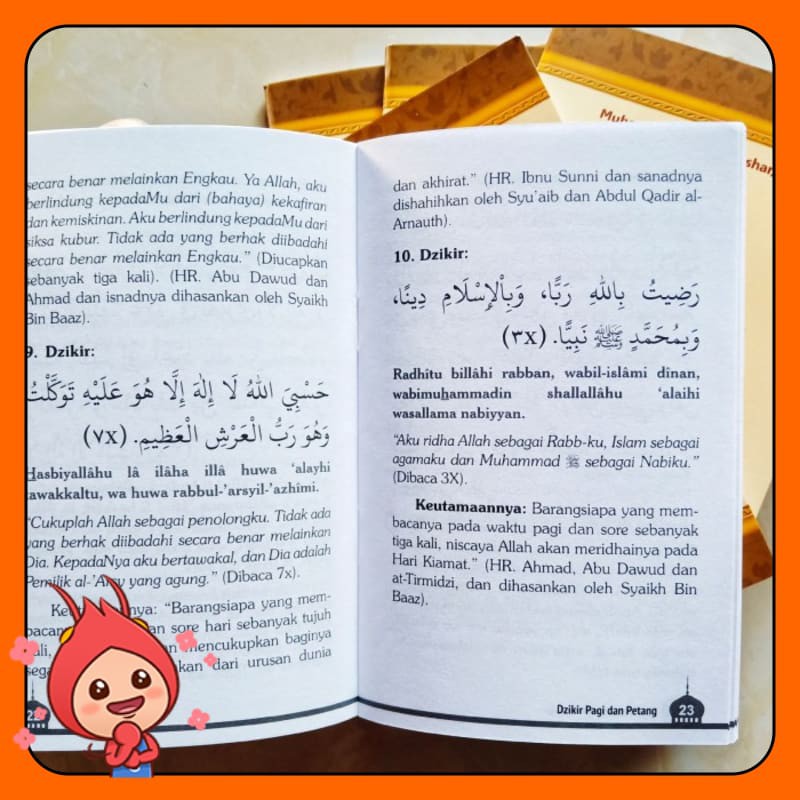 secara benar melainkan Engkau. Ya Allah, aku
berlindung kepadaMu dari (bahaya) kekafiran
dan kemiskinan. Aku berlindung kepadaMu dari
siksa kubur. Tidak ada yang berhak diibadahi
secara benar melainkan Engkau.” (Diucapkan
sebanyak tiga kali). (HR. Abu Dawud dan
Ahmad dan isnadnya dihasankan oleh Syaikh
Bin Baaz).
9. Dzikir:
حَسْبِيَ اللهُ لَا إِلٰهَ إِلَّا هُوَ عَلَيْهِ تَوَكَّلْتُ
وَهُوَ رَبُّ الْعَرْشِ الْعَظِيمِ. (٧x)
Hasbiyallâhu lâ ilâha illâ huwa ‘alayhi
tawakkaltu, wa huwa rabbul-’arsyil-’azhîmi.
“Cukuplah Allah sebagai penolongku. Tidak ada
yang berhak diibadahi secara benar melainkan
Dia. KepadaNya aku bertawakal, dan Dia adalah
Pemilik al-’Arsy yang agung.” (Dibaca 7x).
“Barangsiapa yang mem-
sore hari sebanyak tujuh
kali, mencukupkan baginya
dari urusan dunia
dan akhirat.” (HR. Ibnu Sunni dan sanadnya
dishahihkan oleh Syu’aib dan Abdul Qadir al-
Arnauth).
10. Dzikir:
رَضِيتُ بِاللهِ رَبًّا، وَبِالْإِسْلَامِ دِينًا،
وَبِمُحَمَّدٍ ﷺ نَبِيًّا. (٣x)
Radhîtu billâhi rabban, wabil-islâmi dînan,
wabimuhammadin shallallâhu ‘alaihi
wasallama nabiyyan.
“Aku ridha Allah sebagai Rabb-ku, Islam sebagai
agamaku dan Muhammad ﷺ sebagai Nabiku.”
(Dibaca 3X).
Keutamaannya: Barangsiapa yang mem-
bacanya pada waktu pagi dan sore sebanyak
tiga kali, niscaya Allah akan meridhainya pada
Hari Kiamat.” (HR. Ahmad, Abu Dawud dan
at-Tirmidzi, dan dihasankan oleh Syaikh Bin
Baaz).
Dzikir Pagi dan Petang 23